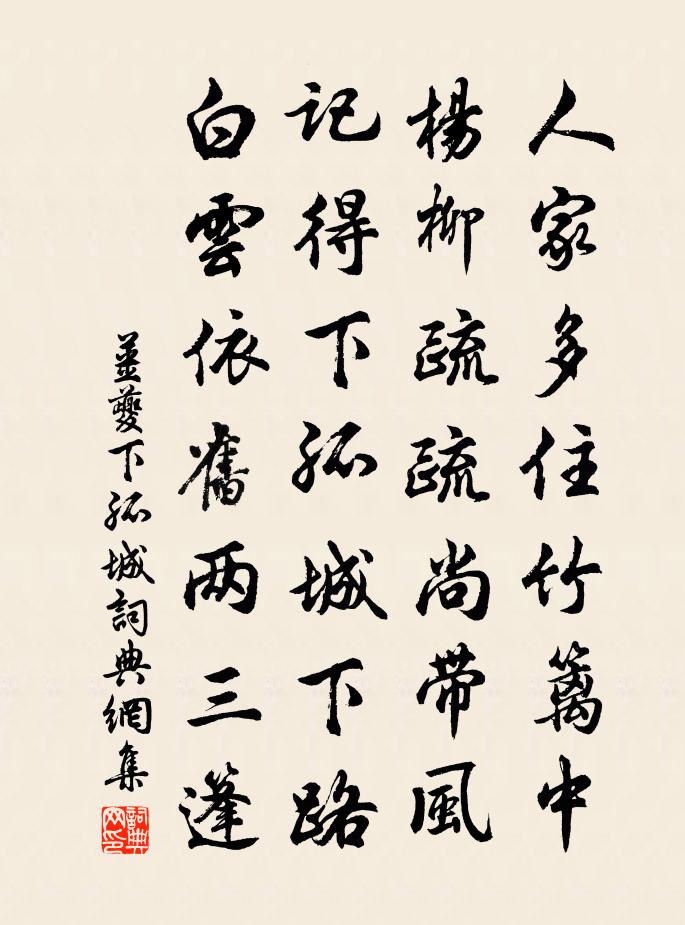 人家多住竹篱中
楊柳疏疏尚带風
记得下孤城下路
白雲依舊两三蓬
姜夔下孤城詞典網集
詞典网印